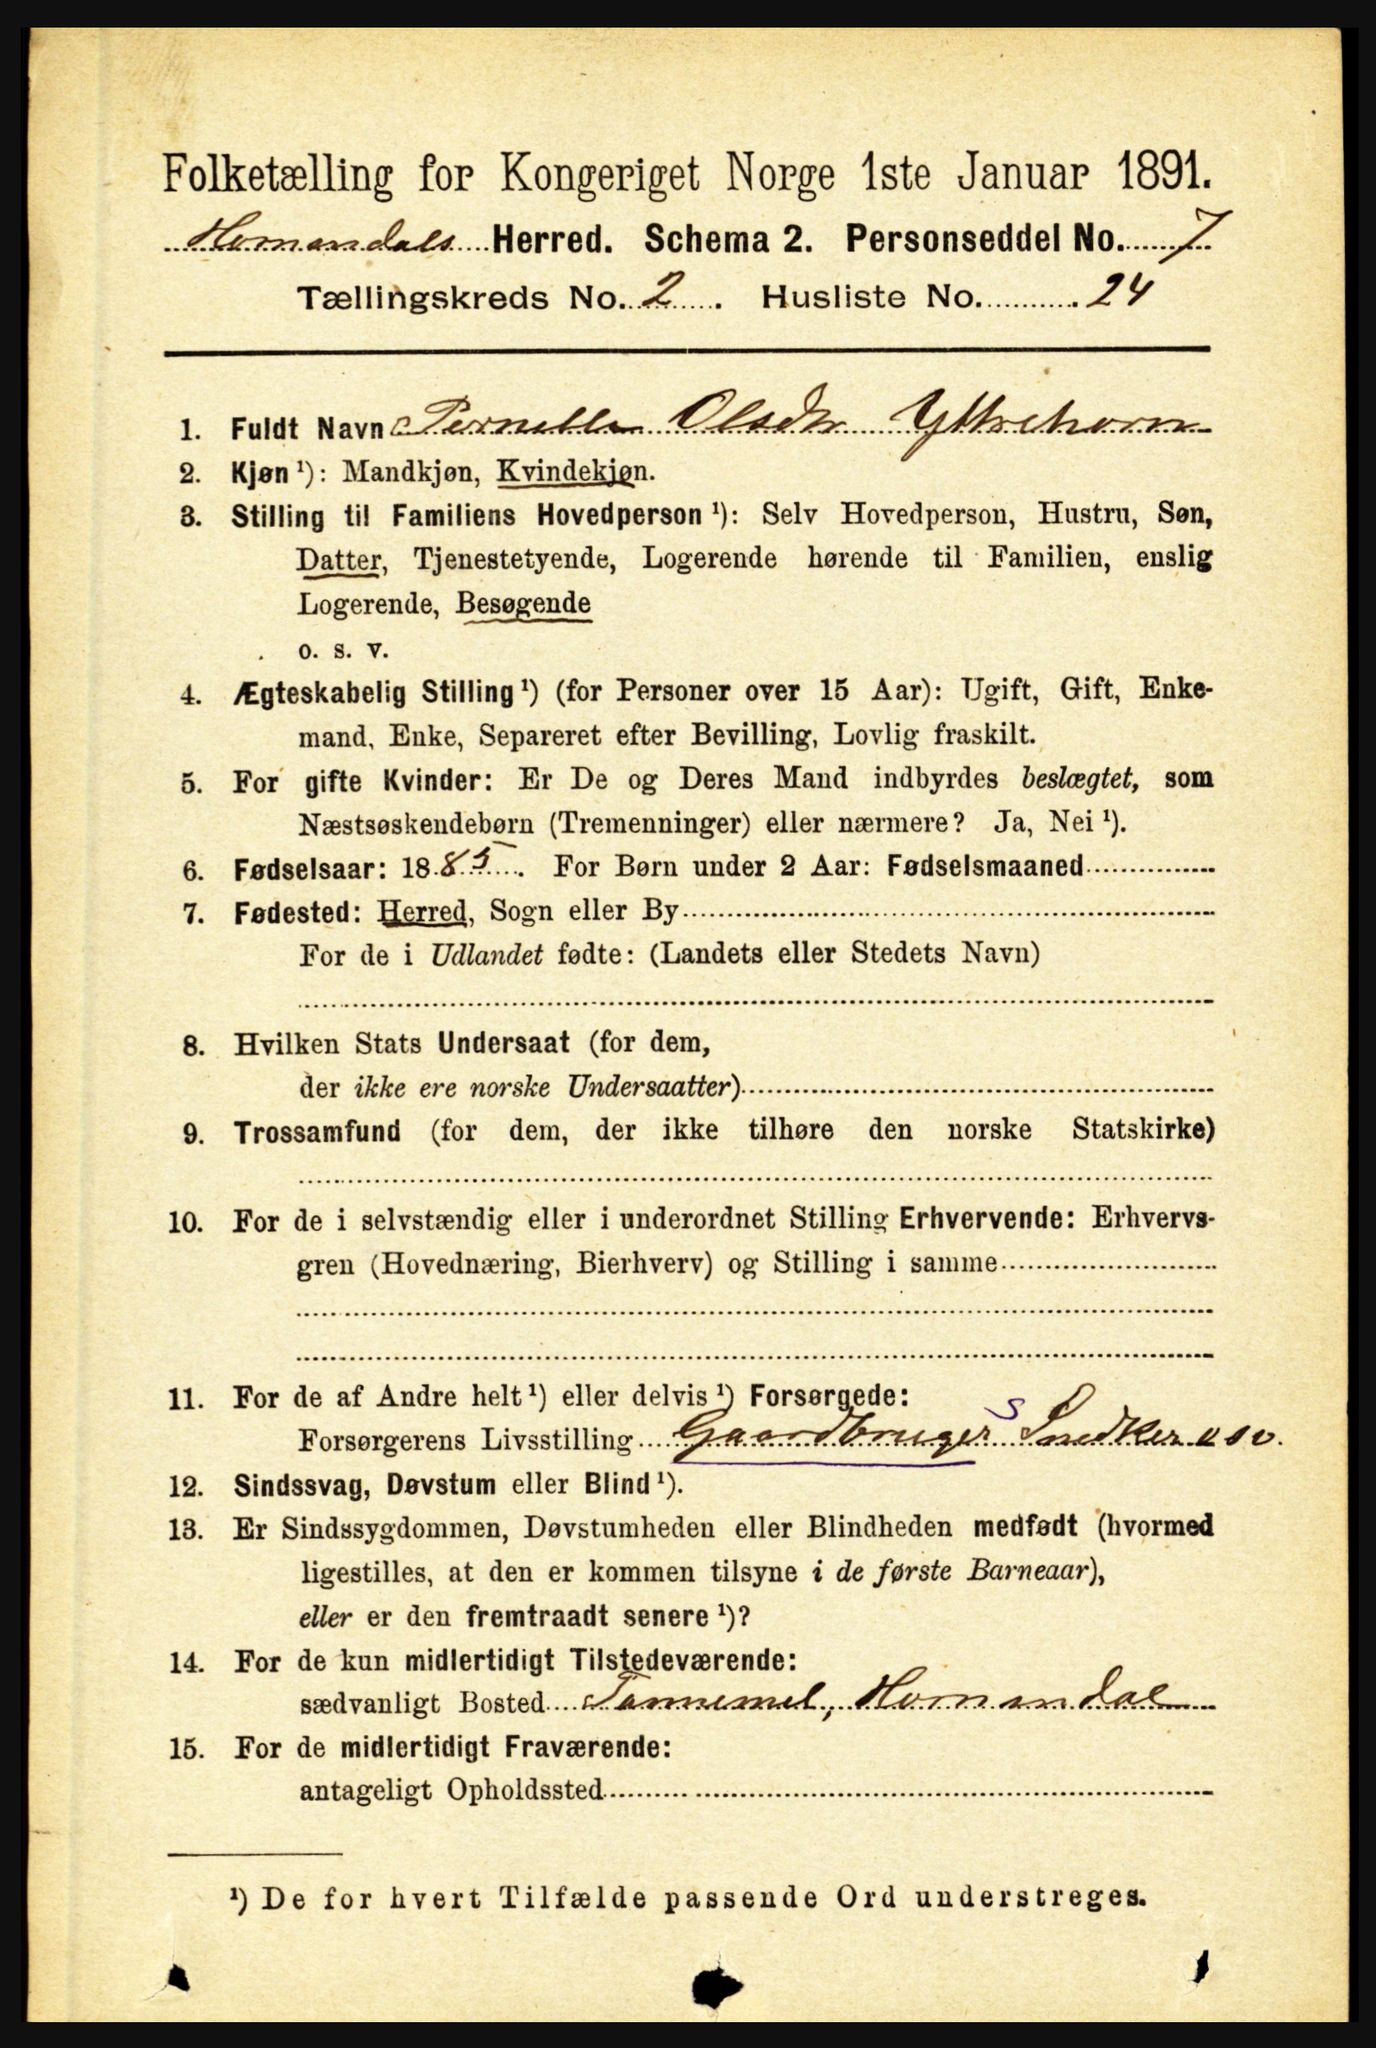 Folketælling for Kongeriget Norge 1ste Januar 1891.
Hornendals Herred. Schema 2. Personseddel No. 7
Tællingskreds No. 2. Husliste No. 24
1. Fuldt Navn Pernille Olsdtr Yttrehorn
2. Kjøn ¹): Mandkjøn, Kvindekjøn.
3. Stilling til Familiens Hovedperson ¹): Selv Hovedperson, Hustru, Søn,
Datter, Tjenestetyende, Logerende hørende til Familien, enslig
Logerende, Besøgende
o. s. v.
4. Ægteskabelig Stilling ¹) (for Personer over 15 Aar): Ugift, Gift, Enke-
mand, Enke, Separeret efter Bevilling, Lovlig fraskilt.
5. For gifte Kvinder: Er De og Deres Mand indbyrdes beslægtet, som
Næstsøskendebørn (Tremenninger) eller nærmere? Ja, Nei ¹).
6. Fødselsaar: 1885. For Børn under 2 Aar: Fødselsmaaned
7. Fødested: Herred, Sogn eller By
For de i Udlandet fødte: (Landets eller Stedets Navn)
8. Hvilken Stats Undersaat (for dem,
der ikke ere norske Undersaatter)
9. Trossamfund (for dem, der ikke tilhøre den norske Statskirke)
10. For de i selvstændig eller i underordnet Stilling Erhvervende: Erhvervs-
gren (Hovednæring, Bierhverv) og Stilling i samme
11. For de af Andre helt ¹) eller delvis ¹) Forsørgede:
Forsørgerens Livsstilling Gaardbruger S Snedker osv.
12. Sindssvag, Døvstum eller Blind ¹).
13. Er Sindssygdommen, Døvstumheden eller Blindheden medfødt (hvormed
ligestilles, at den er kommen tilsyne i de første Barneaar),
eller er den fremtraadt senere ¹)?
14. For de kun midlertidigt Tilstedeværende:
sædvanligt Bosted Tannemel, Hornendal
15. For de midlertidigt Fraværende:
antageligt Opholdssted
¹) De for hvert Tilfælde passende Ord understreges.